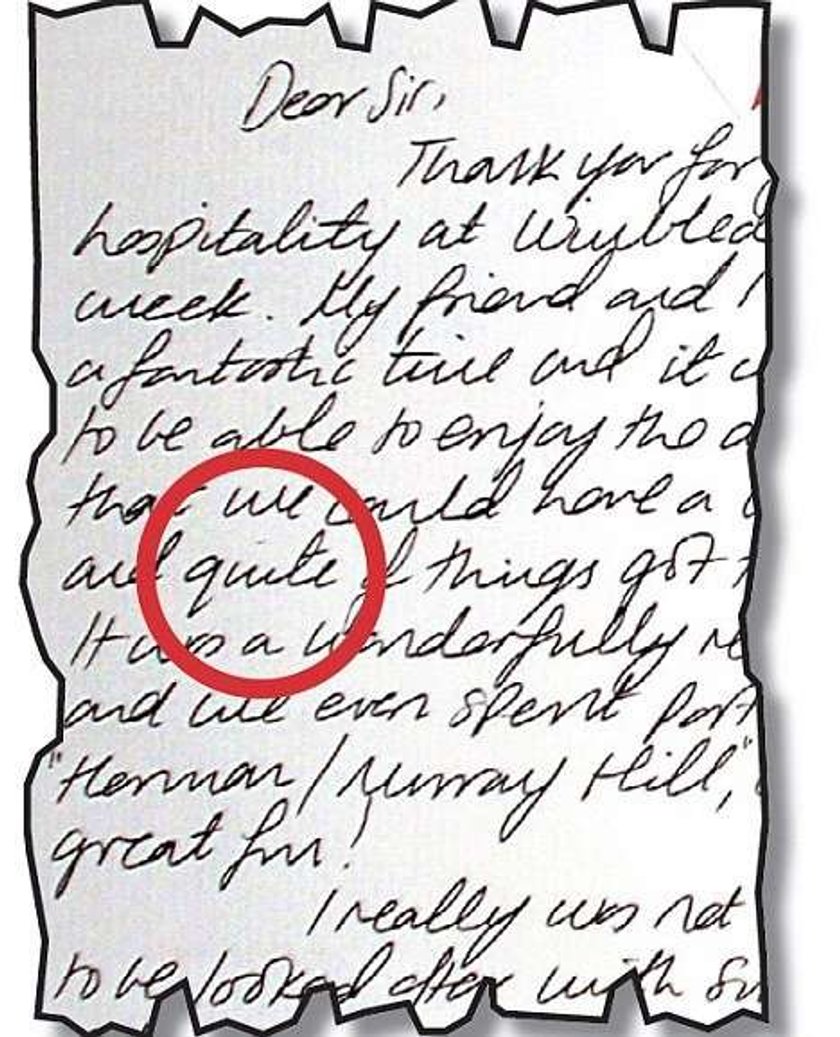 Dear Sir,
Thank you for
hospitality at Wimbled
week. My friend and I
a fantastic time and it
to be able to enjoy the
that we could have a
and quite of things got
It was a wonderfully re
and we even spent part
"Henman / Murray Hill,"
great fun!
I really was not
to be looked after with su